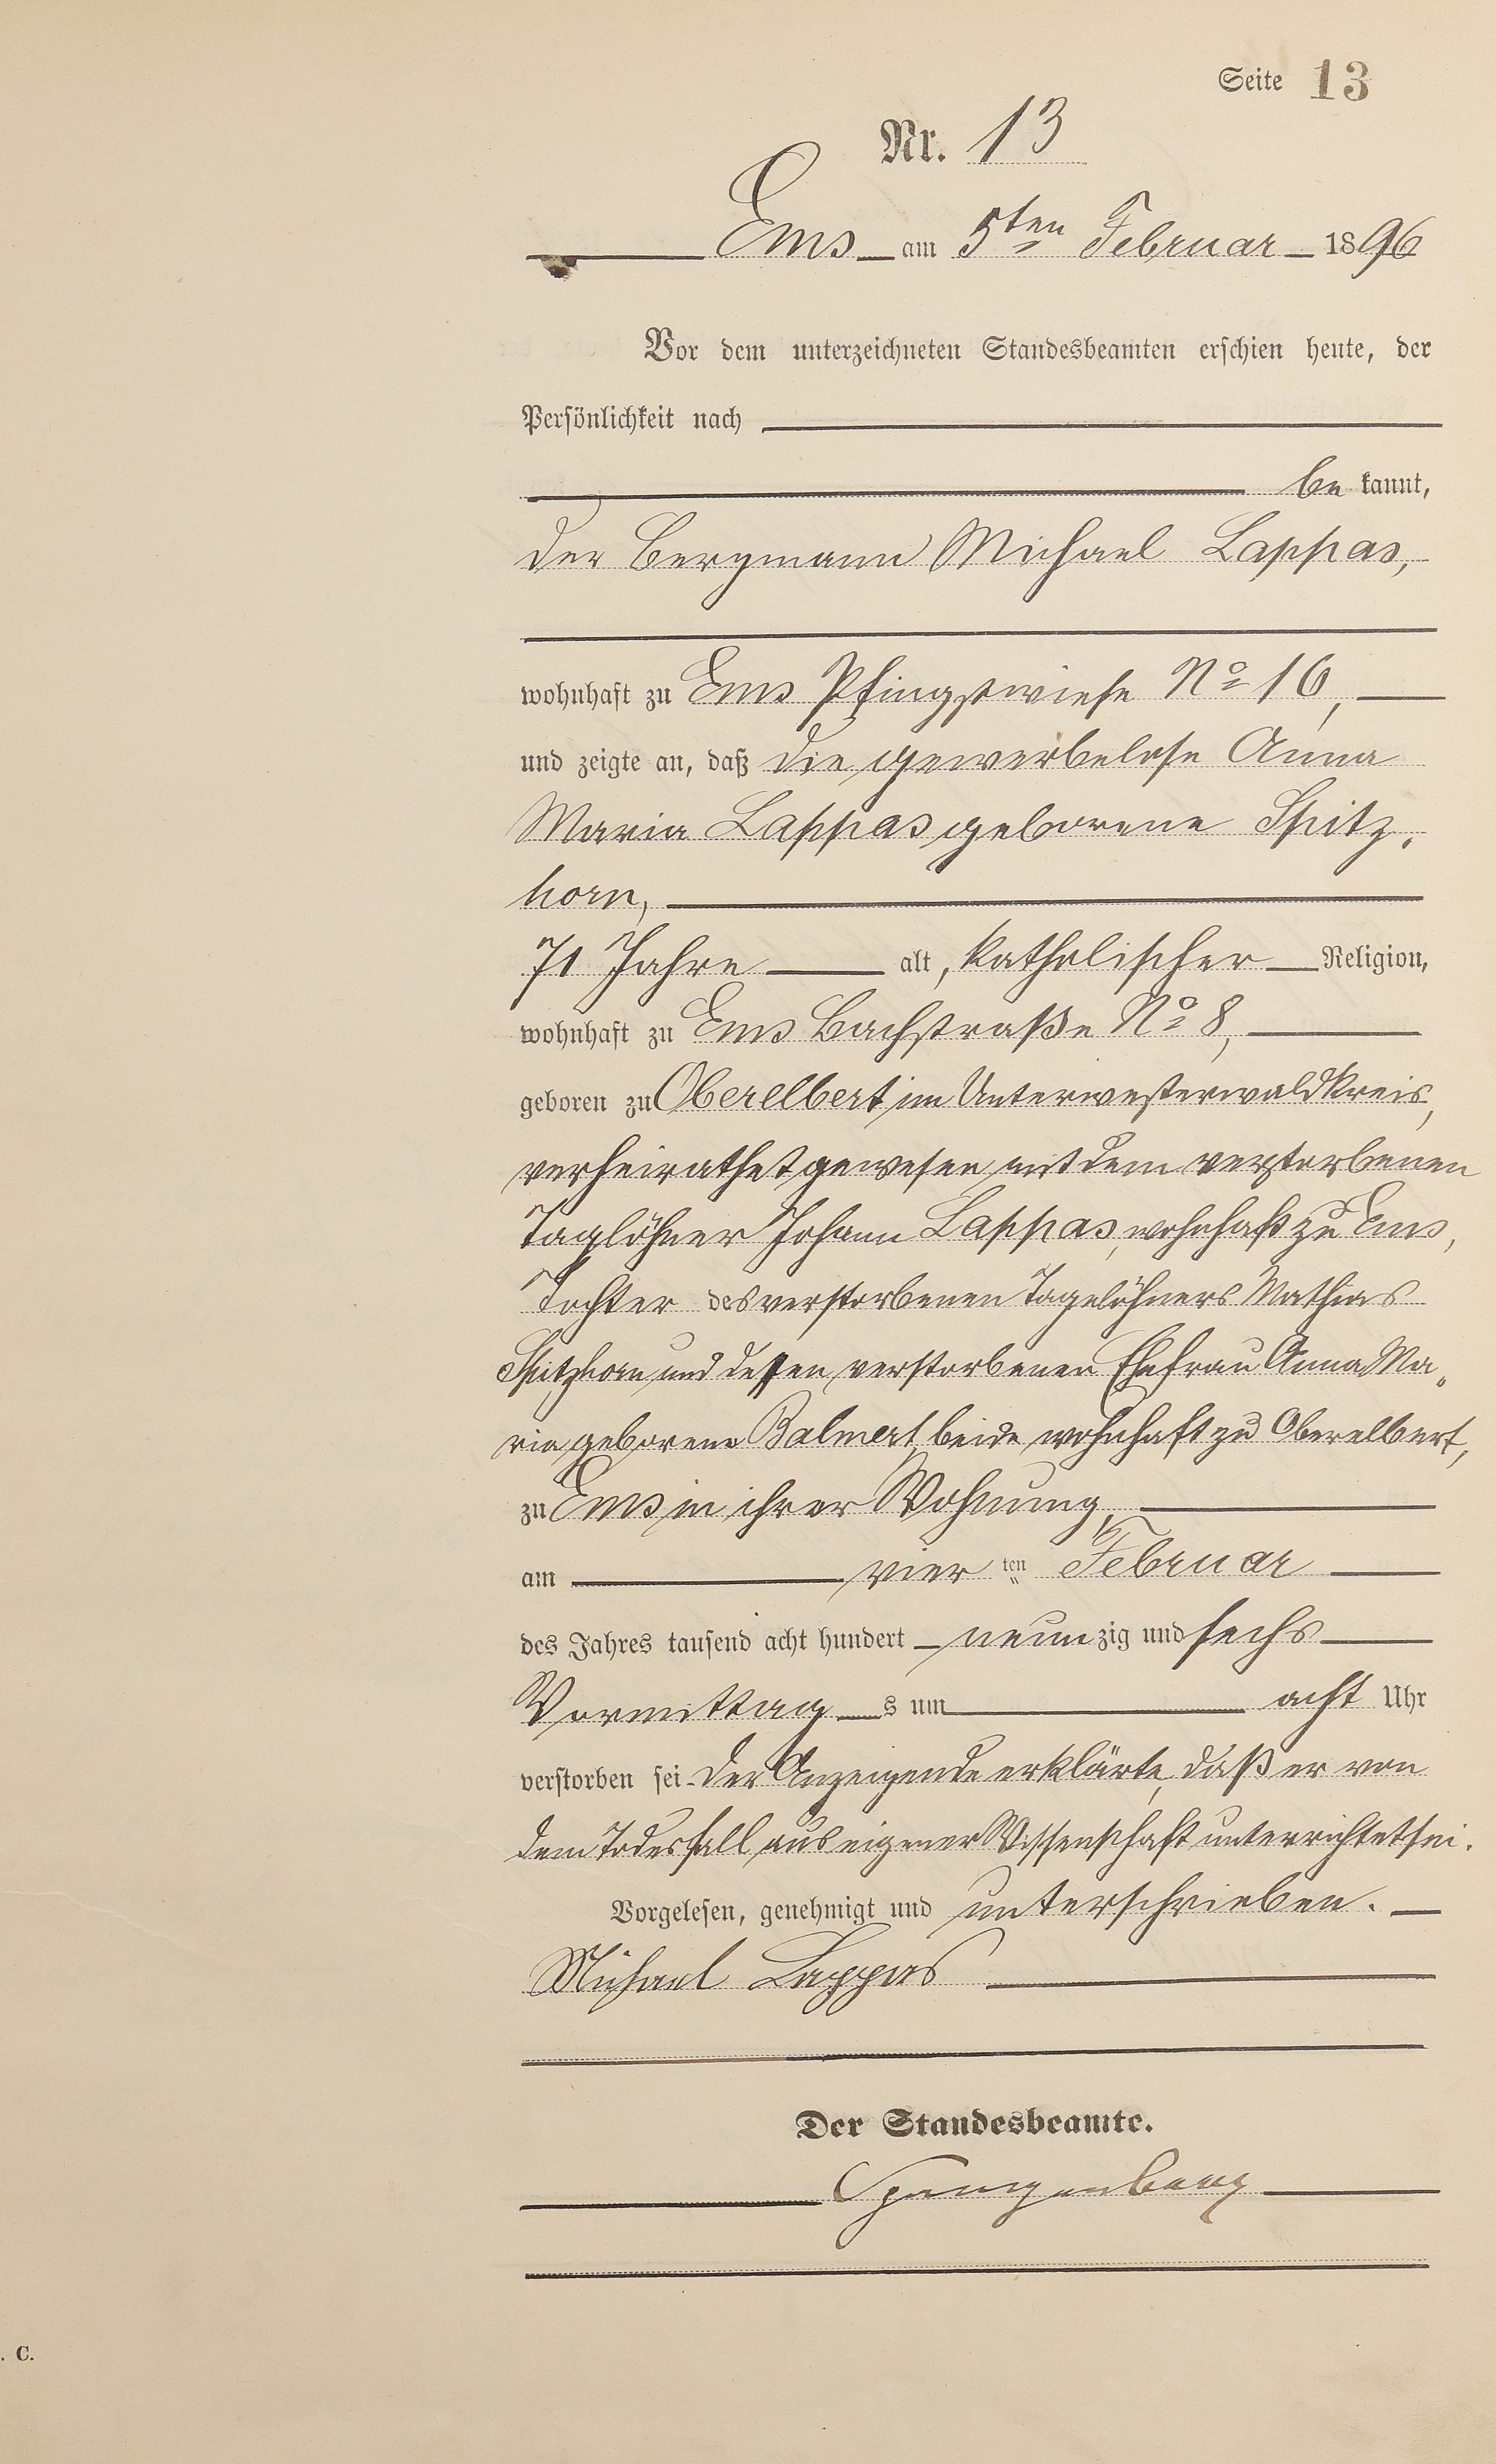 Seite 13
Nr. 13
Ems am 5ten Februar 1896
Vor dem unterzeichneten Standesbeamten erschien heute, der
Persönlichkeit nach
be kannt,
der Bergmann Michael Lappas,
wohnhaft zu Ems Pfingstwiese No 16,
und zeigte an, daß die gewerbelose Anna
Maria Lappas geborene Spitz-
horn,
71 Jahre alt, katholischer Religion,
wohnhaft zu Ems Bachstraße No 8,
geboren zu Oberelbert im Unterwesterwaldkreis,
verheirathet gewesen mit dem verstorbenen
Taglöhner Johann Lappas, wohnhaft zu Ems,
Tochter des verstorbenen Tagelöhners Mathias
Spitzhorn und dessen verstorbenen Ehefrau Anna Ma-
ria geborene Balmert, beide wohnhaft zu Oberelbert,
zu Ems in ihrer Wohnung,
am vier ten Februar
des Jahres tausend acht hundert neun zig und sechs
Vormittag s um acht Uhr
verstorben sei. Der Anzeigende erklärte, daß er von
dem Todesfall aus eigener Wissenschaft unterrichtet sei.
Vorgelesen, genehmigt und unterschrieben.
Michael Lappas
Der Standesbeamte.
Spangenberg
. C.